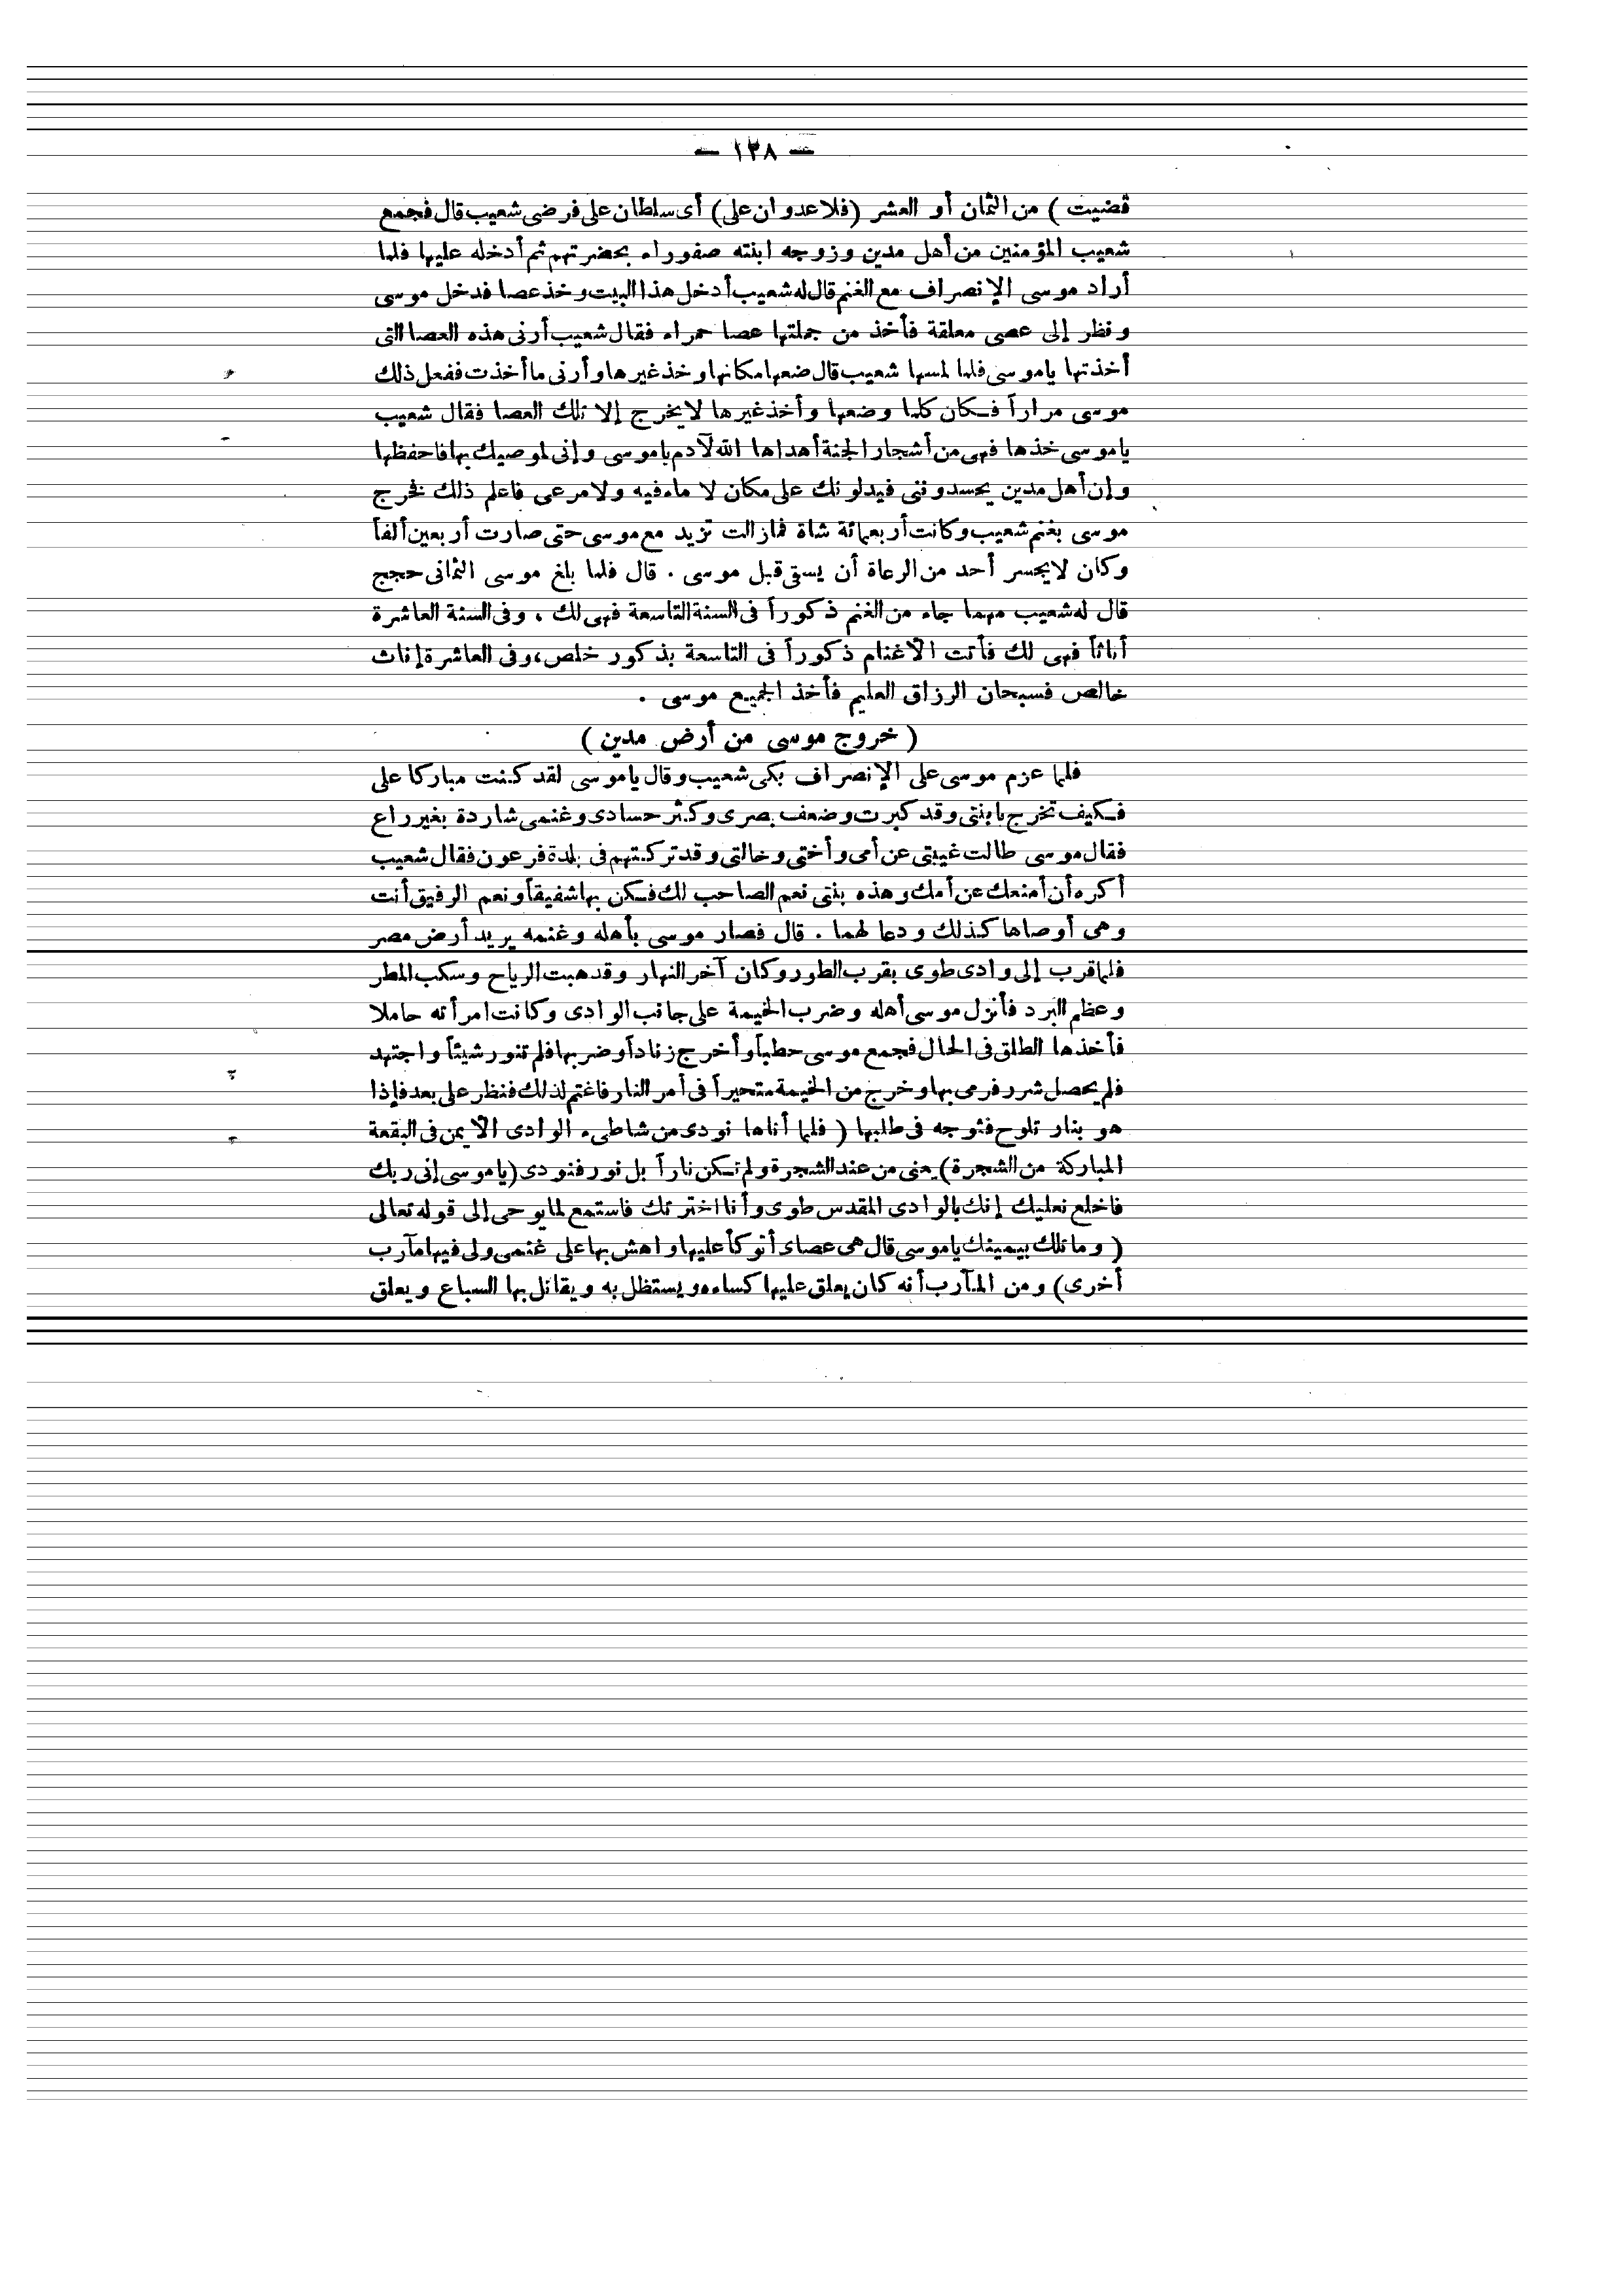 — ١٣٨ —
قضيت ) من الثمان أو العشر (فلا عدوان على) أى سلطان على فرضى شعيب قال فجمع
شعيب المؤمنين من أهل مدين وزوجه ابنته صفوراء بحضرتهم ثم أدخله عليها فلما
أراد موسى الإنصراف مع الغنم قال له شعيب أدخل هذا البيت وخذ عصا فدخل موسى
ونظر إلى عصى معلقة فأخذ من جملتها عصا حمراء فقال شعيب أرنى هذه العصا التى
أخذتها ياموسى فلما لمسها شعيب قال ضعها مكانها وخذ غيرها وأرنى ما أخذت ففعل ذلك
موسى مراراً فكان كلما وضعها وأخذ غيرها لا يخرج إلا تلك العصا فقال شعيب
ياموسى خذها فهى من أشجار الجنة أهداها الله لآدم ياموسى وإنى لموصيك بها فاحفظها
وإن أهل مدين يحسدوننى فيدلونك على مكان لا ماء فيه ولا مرعى فاعلم ذلك فخرج
موسى بغنم شعيب وكانت أربعمائة شاة فمازالت تزيد مع موسى حتى صارت أربعين ألفاً
وكان لا يجسر أحد من الرعاة أن يسقى قبل موسى . قال فلما بلغ موسى الثمانى حجج
قال له شعيب مهما جاء من الغنم ذكوراً فى السنة التاسعة فهى لك ، وفى السنة العاشرة
أناثاً فهى لك فأتت الأغنام ذكوراً فى التاسعة بذكور خلص، وفى العاشرة إناث
خالص فسبحان الرزاق العليم فأخذ الجميع موسى .
( خروج موسى من أرض مدين )
فلما عزم موسى على الإنصراف بكى شعيب وقال ياموسى لقد كنت مباركا على
فكيف تخرج يابنتى وقد كبرت وضعف بصرى وكثر حسادى وغنمى شاردة بغير راع
فقال موسى طالت غيبتى عن أمى وأختى وخالتى وقد تركتهم فى بلدة فرعون فقال شعيب
أكره أن أمنعك عن أمك وهذه بنتى نعم الصاحب لك فكن بها شفيقاً ونعم الرفيق أنت
وهى أوصاها كذلك ودعا لهما . قال فصار موسى بأهله وغنمه يريد أرض مصر
فلما قرب إلى وادى طوى بقرب الطور وكان آخر النهار وقد هبت الرياح وسكب المطر
وعظم البرد فأنزل موسى أهله وضرب الخيمة على جانب الوادى وكانت امرأته حاملا
فأخذها الطلق فى الحال فجمع موسى حطباً وأخرج زناداً وضربها فلم تنور شيئاً واجتهد
فلم يحصل شرر فرمى بها وخرج من الخيمة متحيراً فى أمر النار فاغتم لذلك فنظر على بعد فإذا
هو بنار تلوح فتوجه فى طلبها ( فلما أتاها نودى من شاطىء الوادى الأيمن فى البقعة
المباركة من الشجرة) يعنى من عند الشجرة ولم تكن ناراً بل نور فنودى (ياموسى إنى ربك
فاخلع نعليك إنك بالوادى المقدس طوى وأنا اخترتك فاستمع لما يوحى إلى قوله تعالى
( وما تلك بيمينك ياموسى قال هى عصاى أتوكأ عليها واهش بها على غنمى ولى فيها مآرب
أخرى) ومن المآرب أنه كان يعلق عليها كساءه ويستظل به ويقاتل بها السباع ويعلق